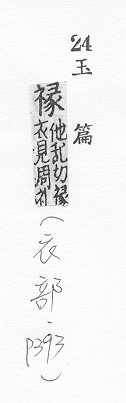 24 玉篇
褖
他乱切褖
衣見周礼
(衣部·P393)